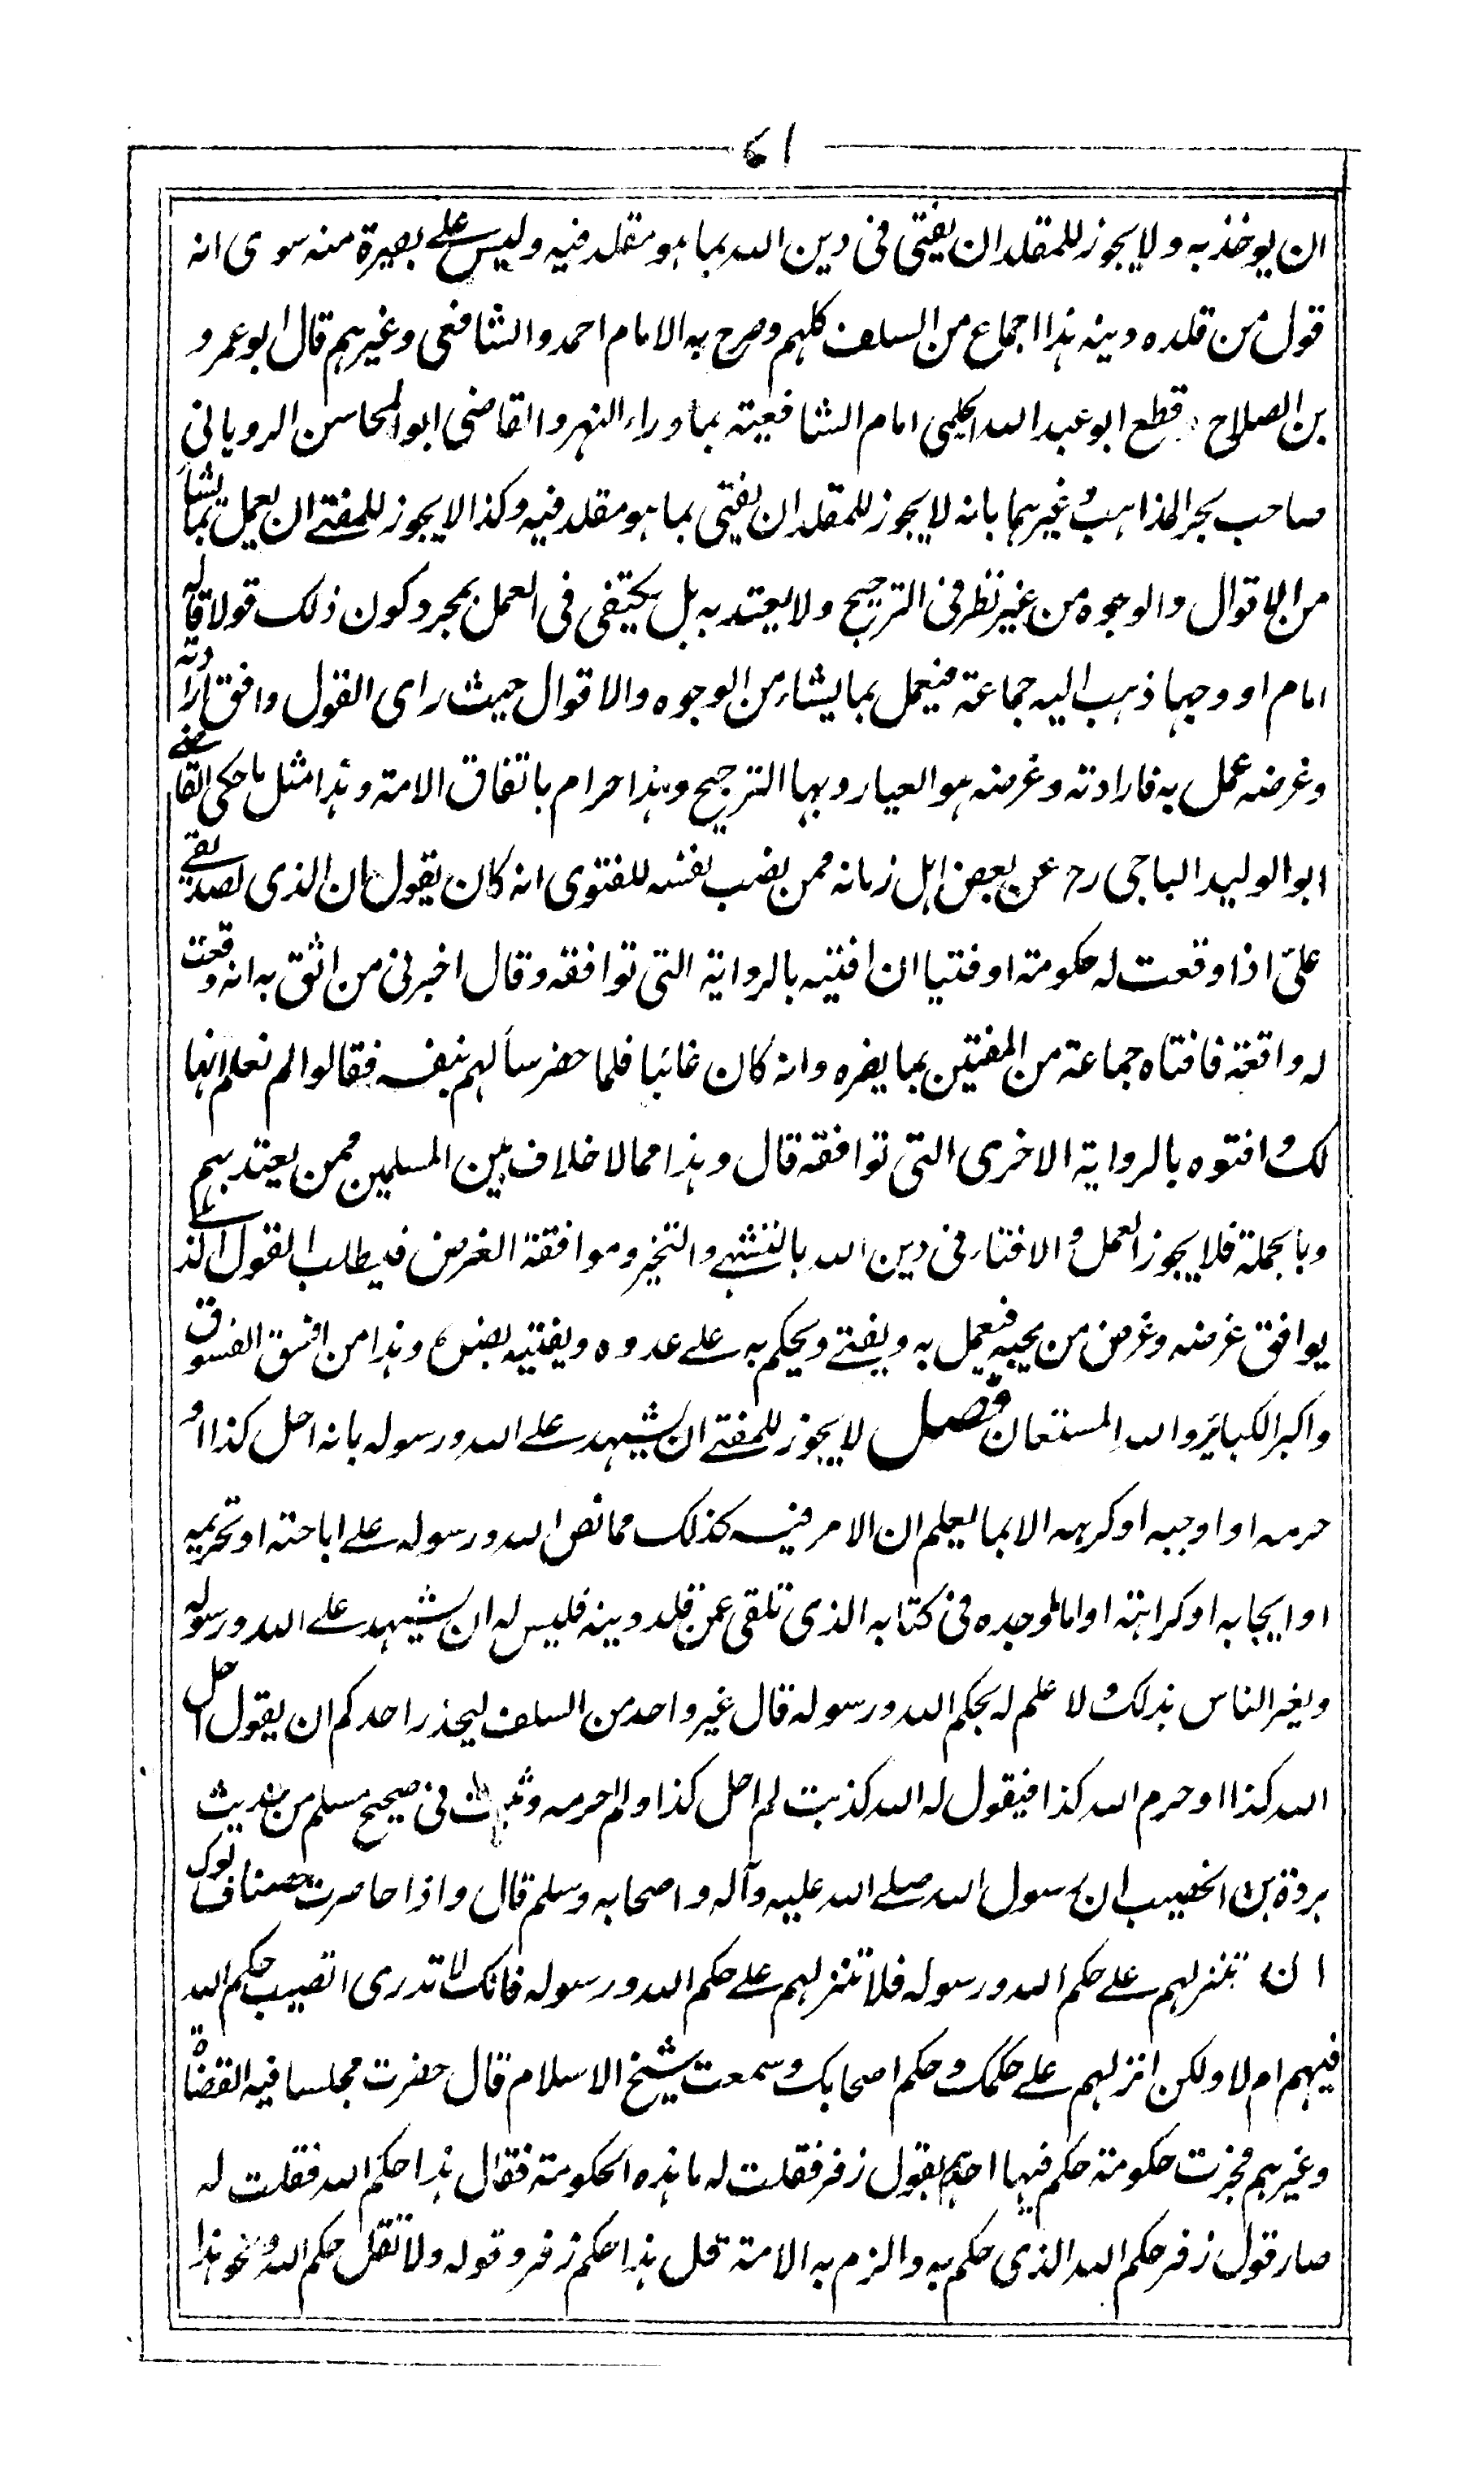 ٦١
ان يوخذ به ولا يجوز للمقلد ان يفتى فى دين الله بما هو مقلد فيه وليس على بصيرة منه سوى انه
قول من قلده دينه هذا اجماع من السلف كلهم وصرح به الامام احمد والشافعى وغيرهم قال ابو عمرو
بن الصلاح قطع ابو عبد الله الحليمى امام الشافعية بما وراء النهر والقاضى ابو المحاسن الرويانى
صاحب بحر المذاهب وغيرهما بانه لا يجوز للمقلد ان يفتى بما هو مقلد فيه وكذا لا يجوز للمفتے ان يعمل بما يشاء
من الاقوال والوجوه من غير نظر فى الترجيح ولا يعتد به بل يكتفى فى العمل بمجرد كون ذلك قولا قاله
امام او وجها ذهب اليه جماعة فيعمل بما يشاء من الوجوه والاقوال حيث راى القول وافق ارادته
وغرضه عمل به فارادته وغرضه هو العيار وبها الترجيح وهذا حرام باتفاق الامة وهذا مثل ما حكى القاضے
ابو الوليد الباجى رح عن بعض اهل زمانه ممن نصب نفسه للفتوى انه كان يقول ان الذى لصديقے
علىّ اذا وقعت له حكومة او فتيا ان افتيه بالرواية التى توافقه وقال اخبرنى من اثق به انه وقعت
له واقعة فافتاه جماعة من المفتين بما يضره وانه كان غائبا فلما حضر سألهم بنفسه فقالوا لم نعلم انها
لك وافتوه بالرواية الاخرى التى توافقه قال وهذا مما لا خلاف بين المسلمين ممن يعتد بهم
وبالجملة فلا يجوز العمل والافتاء فى دين الله بالتشهے والتخير وموافقة الغرض فيطلب القول الذے
يوافق غرضه وغرض من يحبه فيعمل به ويفتے ويحكم به علے عدوه ويفتيه بضده وهذا من افسق الفسوق
واكبر الكبائر والله المستعان فصل لا يجوز للمفتے ان يشهد علے الله ورسوله بانه احل كذا او
حرمه او اوجبه او كرهه الا بما يعلم ان الامر فيه كذلك مما نص الله ورسوله علے اباحته او تحريمه
او ايجابه او كراهته او اما ما وجده فى كتابه الذى تلقى عمن قلد دينه فليس له ان يشهد علے الله ورسوله
ويغر الناس بذلك ولا علم له بحكم الله ورسوله قال غير واحد من السلف ليحذر احدكم ان يقول احل
الله كذا او حرم الله كذا فيقول له الله كذبت لم احل كذا ولم احرمه وثبت فى صحيح مسلم من حديث
بردة بن الخصيب ان رسول الله صلے الله عليه وآله واصحابه وسلم قال واذا حاصرت حصنا فسالوك
ان تنزلهم علے حكم الله ورسوله فلا تنزلهم علے حكم الله ورسوله فانك لا تدرى اتصيب حكم الله
فيهم ام لا ولكن انزلهم علے حكمك وحكم اصحابك وسمعت شيخ الاسلام قال حضرت مجلسا فيه القضاة
وغيرهم فجرت حكومة حكم فيها احدهم بقول زفر فقلت له ما هذه الحكومة فقال هذا حكم الله فقلت له
صار قول زفر حكم الله الذى حكم به والزم به الامة قل هذا حكم زفر وقوله ولا تقل حكم الله ونحو هذا